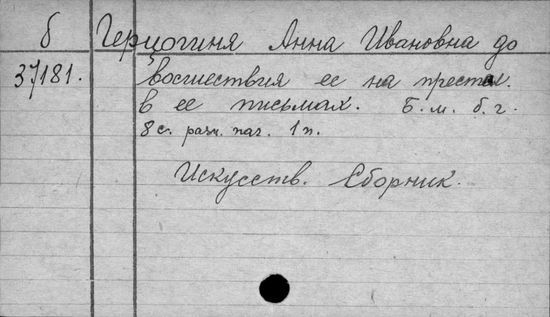 б Герцогиня Анна Ивановна до
37181. восшествия ее на престол.
в ее письмах. Б. м. б. г.
8 с. разн. паг. 1 п.
Искусств. Сборник.